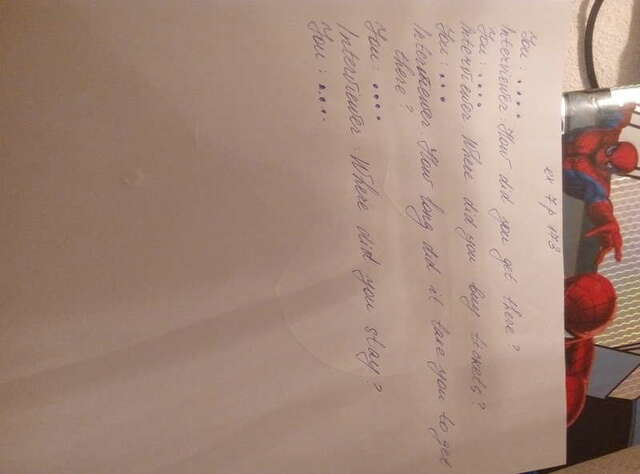 ex 7 p 173
You : ....
Interviewer. How did you get there?
You : ....
Interviewer Where did you buy tickets?
You : ...
Interviewer. How long did it take you to get
there?
You : ....
Interviewer : Where did you stay?
You : ....